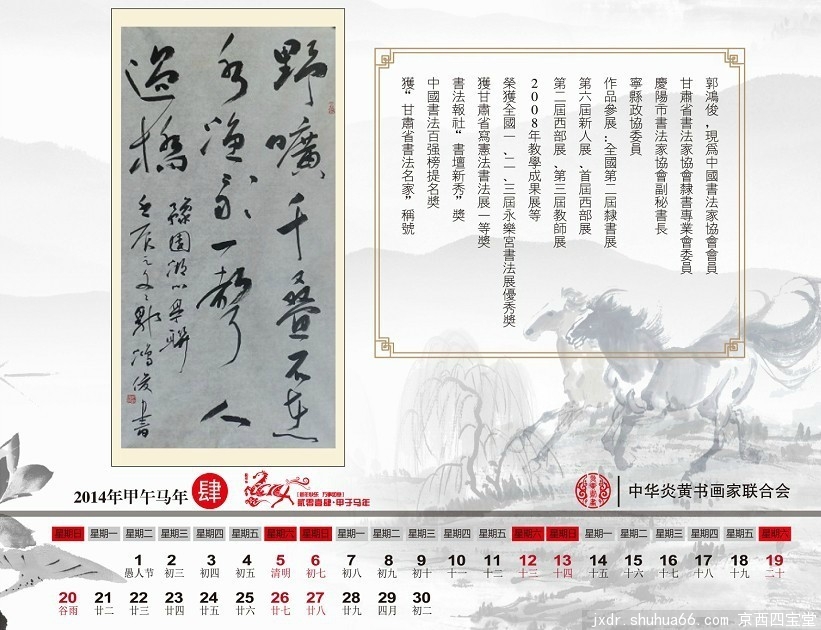 野曠千叠石在
水漁歌一聲人
過橋
豫園湖心亭聯
壬辰之 郭鴻俊書
郭鴻俊,現爲中國書法家協會會員
甘肅省書法家協會隸書專業會委員
慶陽市書法家協會副秘書長
寧縣政協委員
作品參展:全國第二屆隸書展
第六屆新人展、首屆西部展
第二屆西部展、第三屆教師展
2008年教學成果展等
榮獲全國一、二、三屆永樂宫書法展優秀獎
獲甘肅省寫憲法書法展一等獎
書法報社“書壇新秀”獎
中國書法百强榜提名獎
獲“甘肅省書法名家”稱號
2014年甲午马年 肆
贰零壹肆·甲子马年
中华炎黄书画家联合会
星期日 星期一 星期二 星期三 星期四 星期五 星期六 星期日 星期一 星期二 星期三 星期四 星期五 星期六 星期日 星期一 星期二 星期三 星期四 星期五 星期六
1 2 3 4 5 6 7 8 9 10 11 12 13 14 15 16 17 18 19
愚人节 初三 初四 初五 清明 初七 初八 初九 初十 十一 十二 十三 十四 十五 十六 十七 十八 十九 二十
20 21 22 23 24 25 26 27 28 29 30
谷雨 廿二 廿三 廿四 廿五 廿六 廿七 廿八 廿九 四月 初二
jxdr.shuhua66.com 京西四宝堂